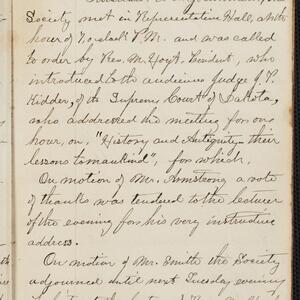 Society met in Representative Hall, at the
hour of 7 o'clock P.M. and was called
to order by Rev. M. Hoyt, President, who
introduced to the audience Judge J. P.
Kidder, of the Supreme Court of Dakota,
who addressed the meeting for one
hour, on, "History and Antiquity - their
lessons to mankind", for which,
On motion of Mr. Armstrong a vote
of thanks was tendered to the lecturer
of the evening for his very instructive
address.
On motion of Mr. Smith the Society
adjourned until next Tuesday evening